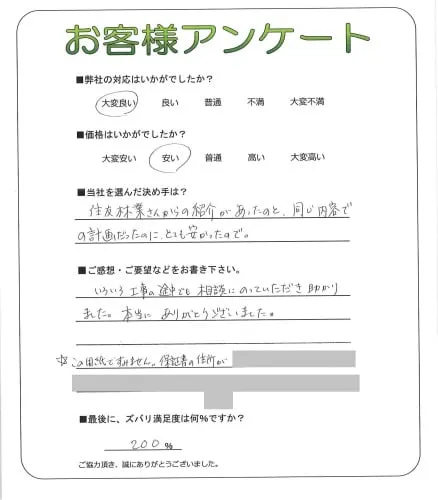 お客様アンケート
■弊社の対応はいかがでしたか？
大変良い 良い 普通 不満 大変不満
■価格はいかがでしたか？
大変安い 安い 普通 高い 大変高い
■当社を選んだ決め手は？
住友林業さんからの紹介があったのと、同じ内容で
の計画だったのに、とても安かったので。
■ご感想・ご要望などをお書き下さい。
いろいろ工事の途中でも相談にのっていただき助かり
ました。本当にありがとうございました。
☆この用紙ですみません。保証書の住所が
■最後に、ズバリ満足度は何％ですか？
200％
ご協力頂き、誠にありがとうございました。